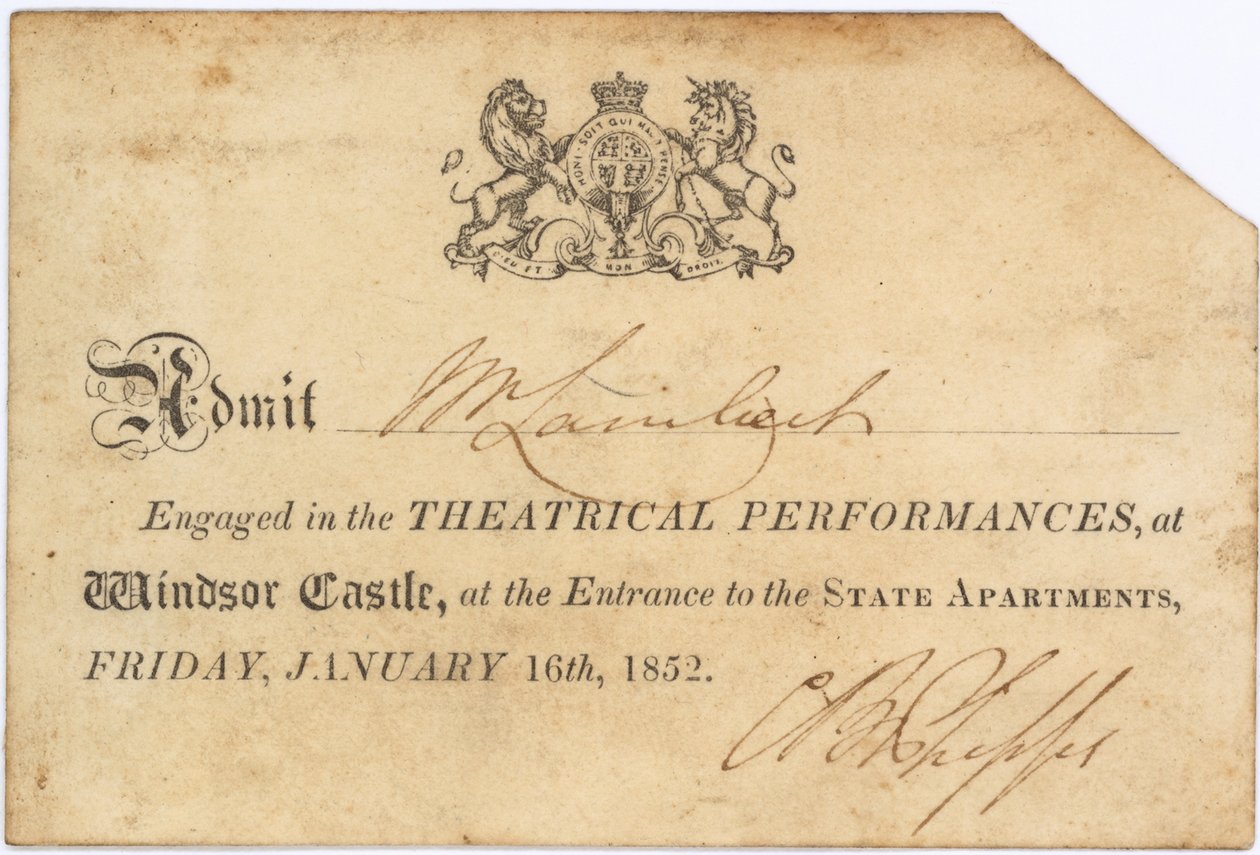 HONI · SOIT QUI MAL Y PENSE
DIEU ET MON DROIT.
Admit Mr Lambert
Engaged in the THEATRICAL PERFORMANCES, at
Windsor Castle, at the Entrance to the STATE APARTMENTS,
FRIDAY, JANUARY 16th, 1852.
C B Phipps